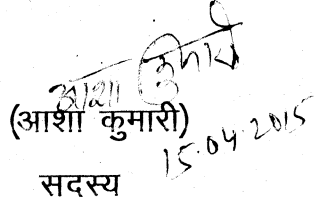 आशा कुमारी
(आशा कुमारी)
15.04.2015
सदस्य